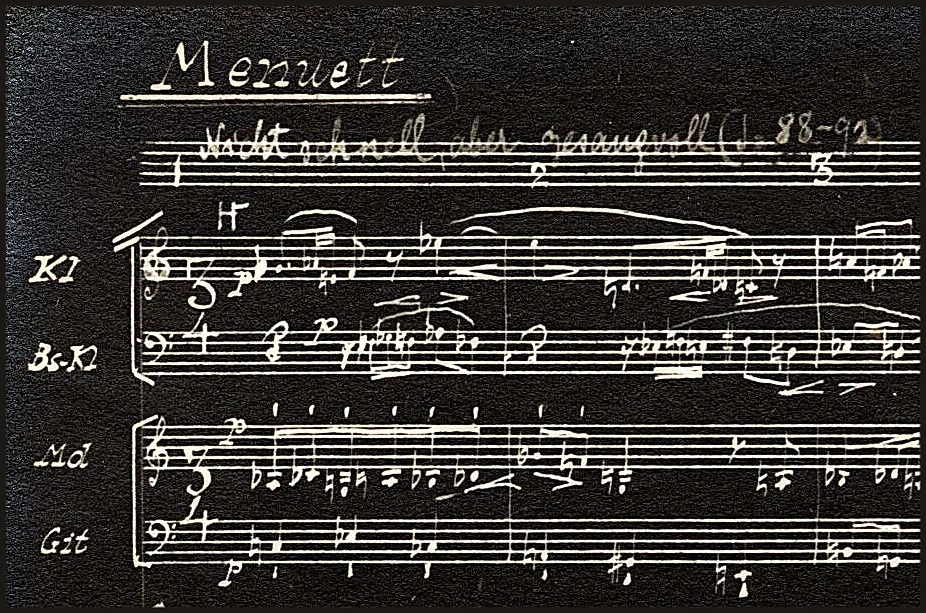 Menuett
Nicht schnell, aber gesangvoll (♩= 88-92)
1 2 3
H
Kl
3
4
p
Bs-Kl
p
Md
3
4
p
Git
p